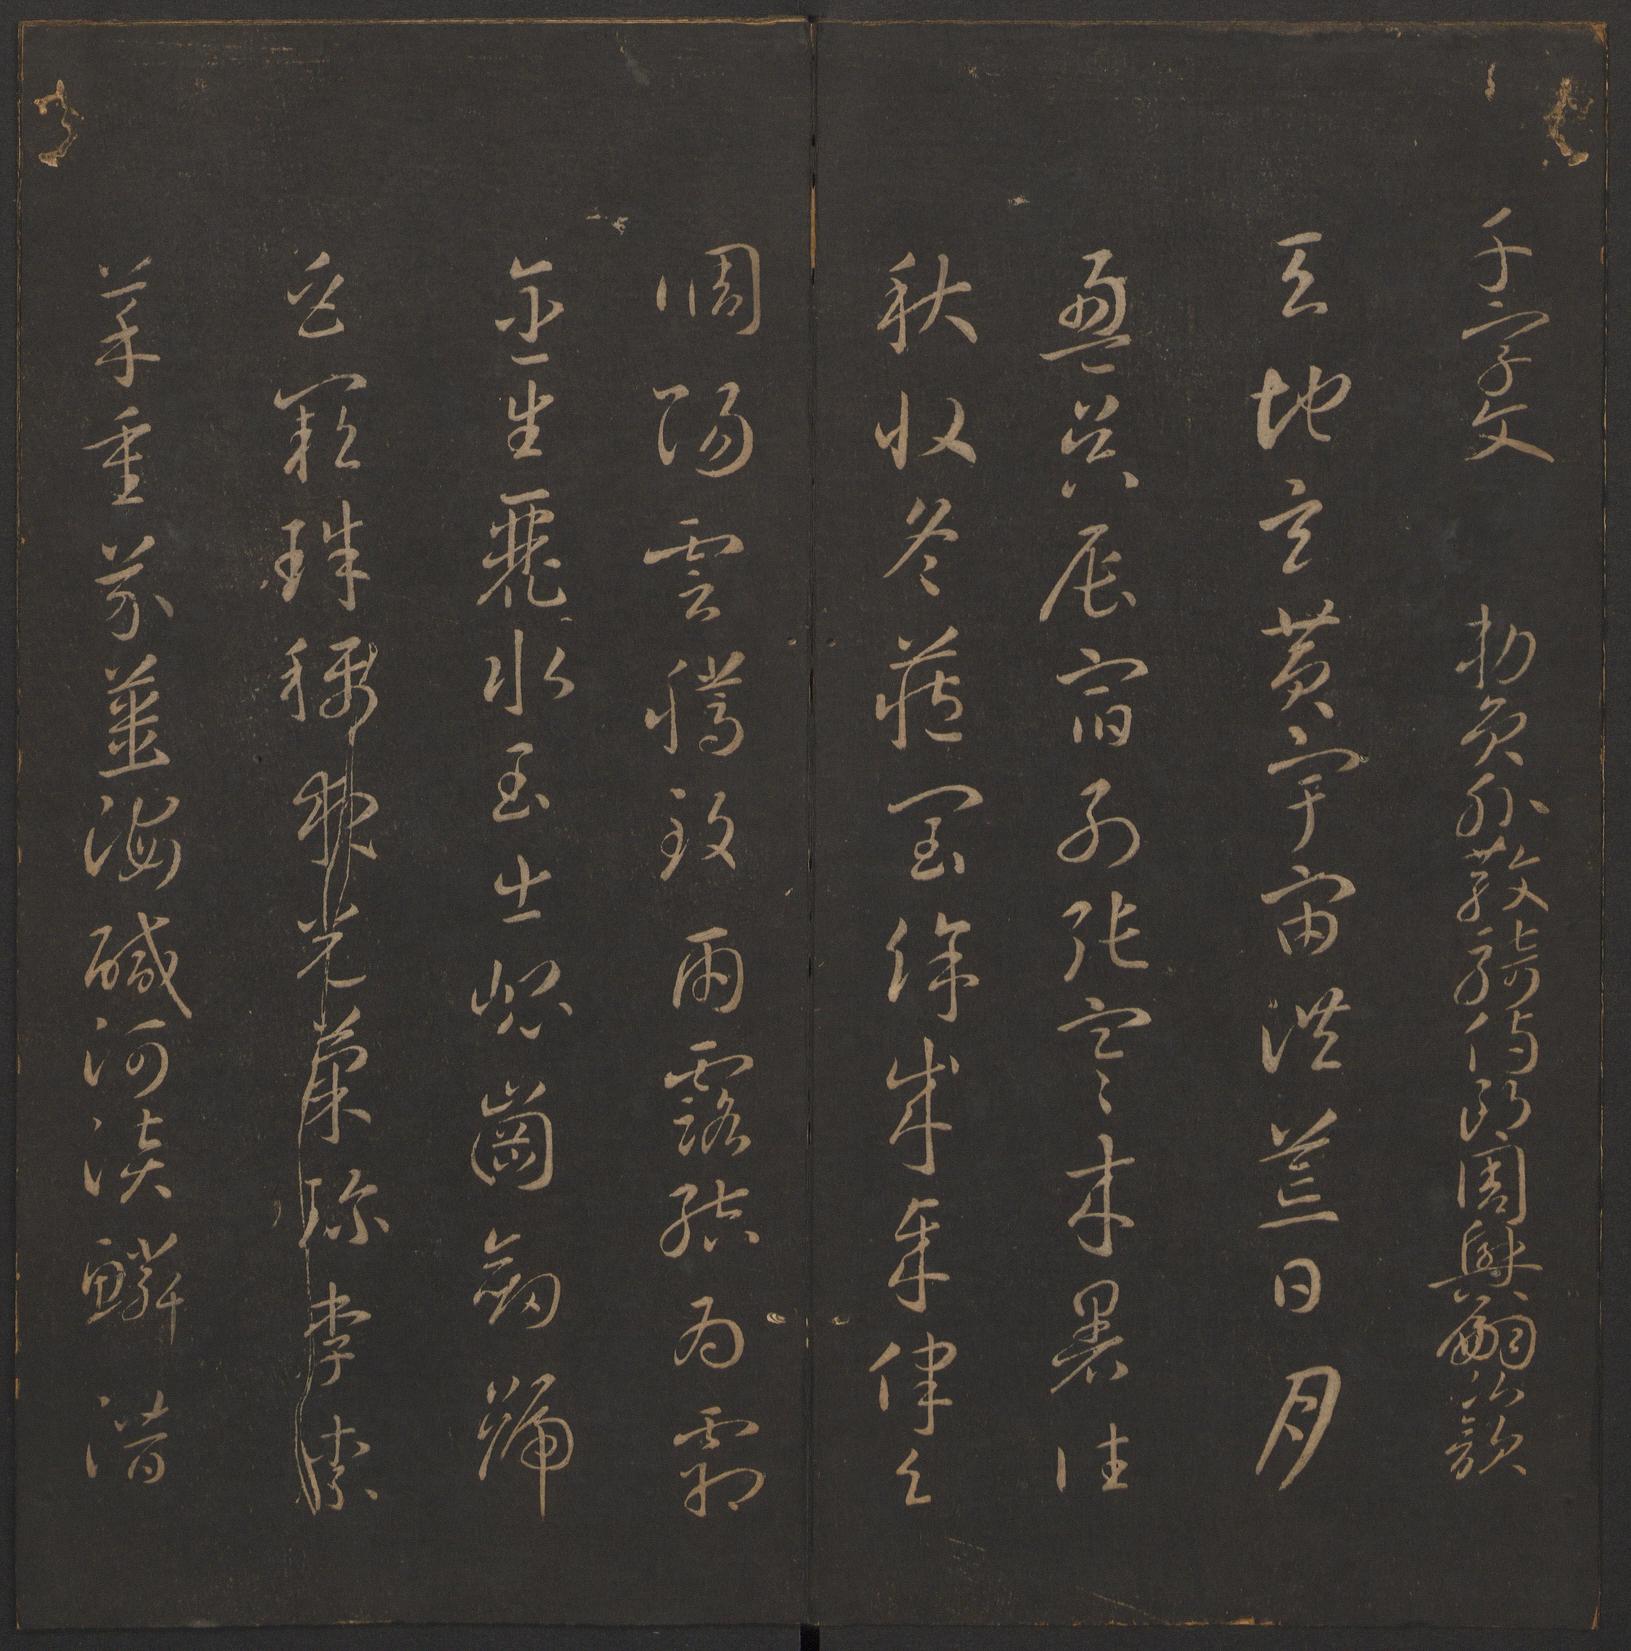 千字文 勅員外散騎侍郎周興嗣次韻
天地玄黃宇宙洪荒日月
盈昃辰宿列張寒来暑往
秋收冬藏閏餘成歲律呂
調陽雲騰致雨露結為霜
金生麗水玉出崑崗劒號
巨闕珠稱夜光菓珍李柰
菜重芥薑海鹹河淡鱗潛